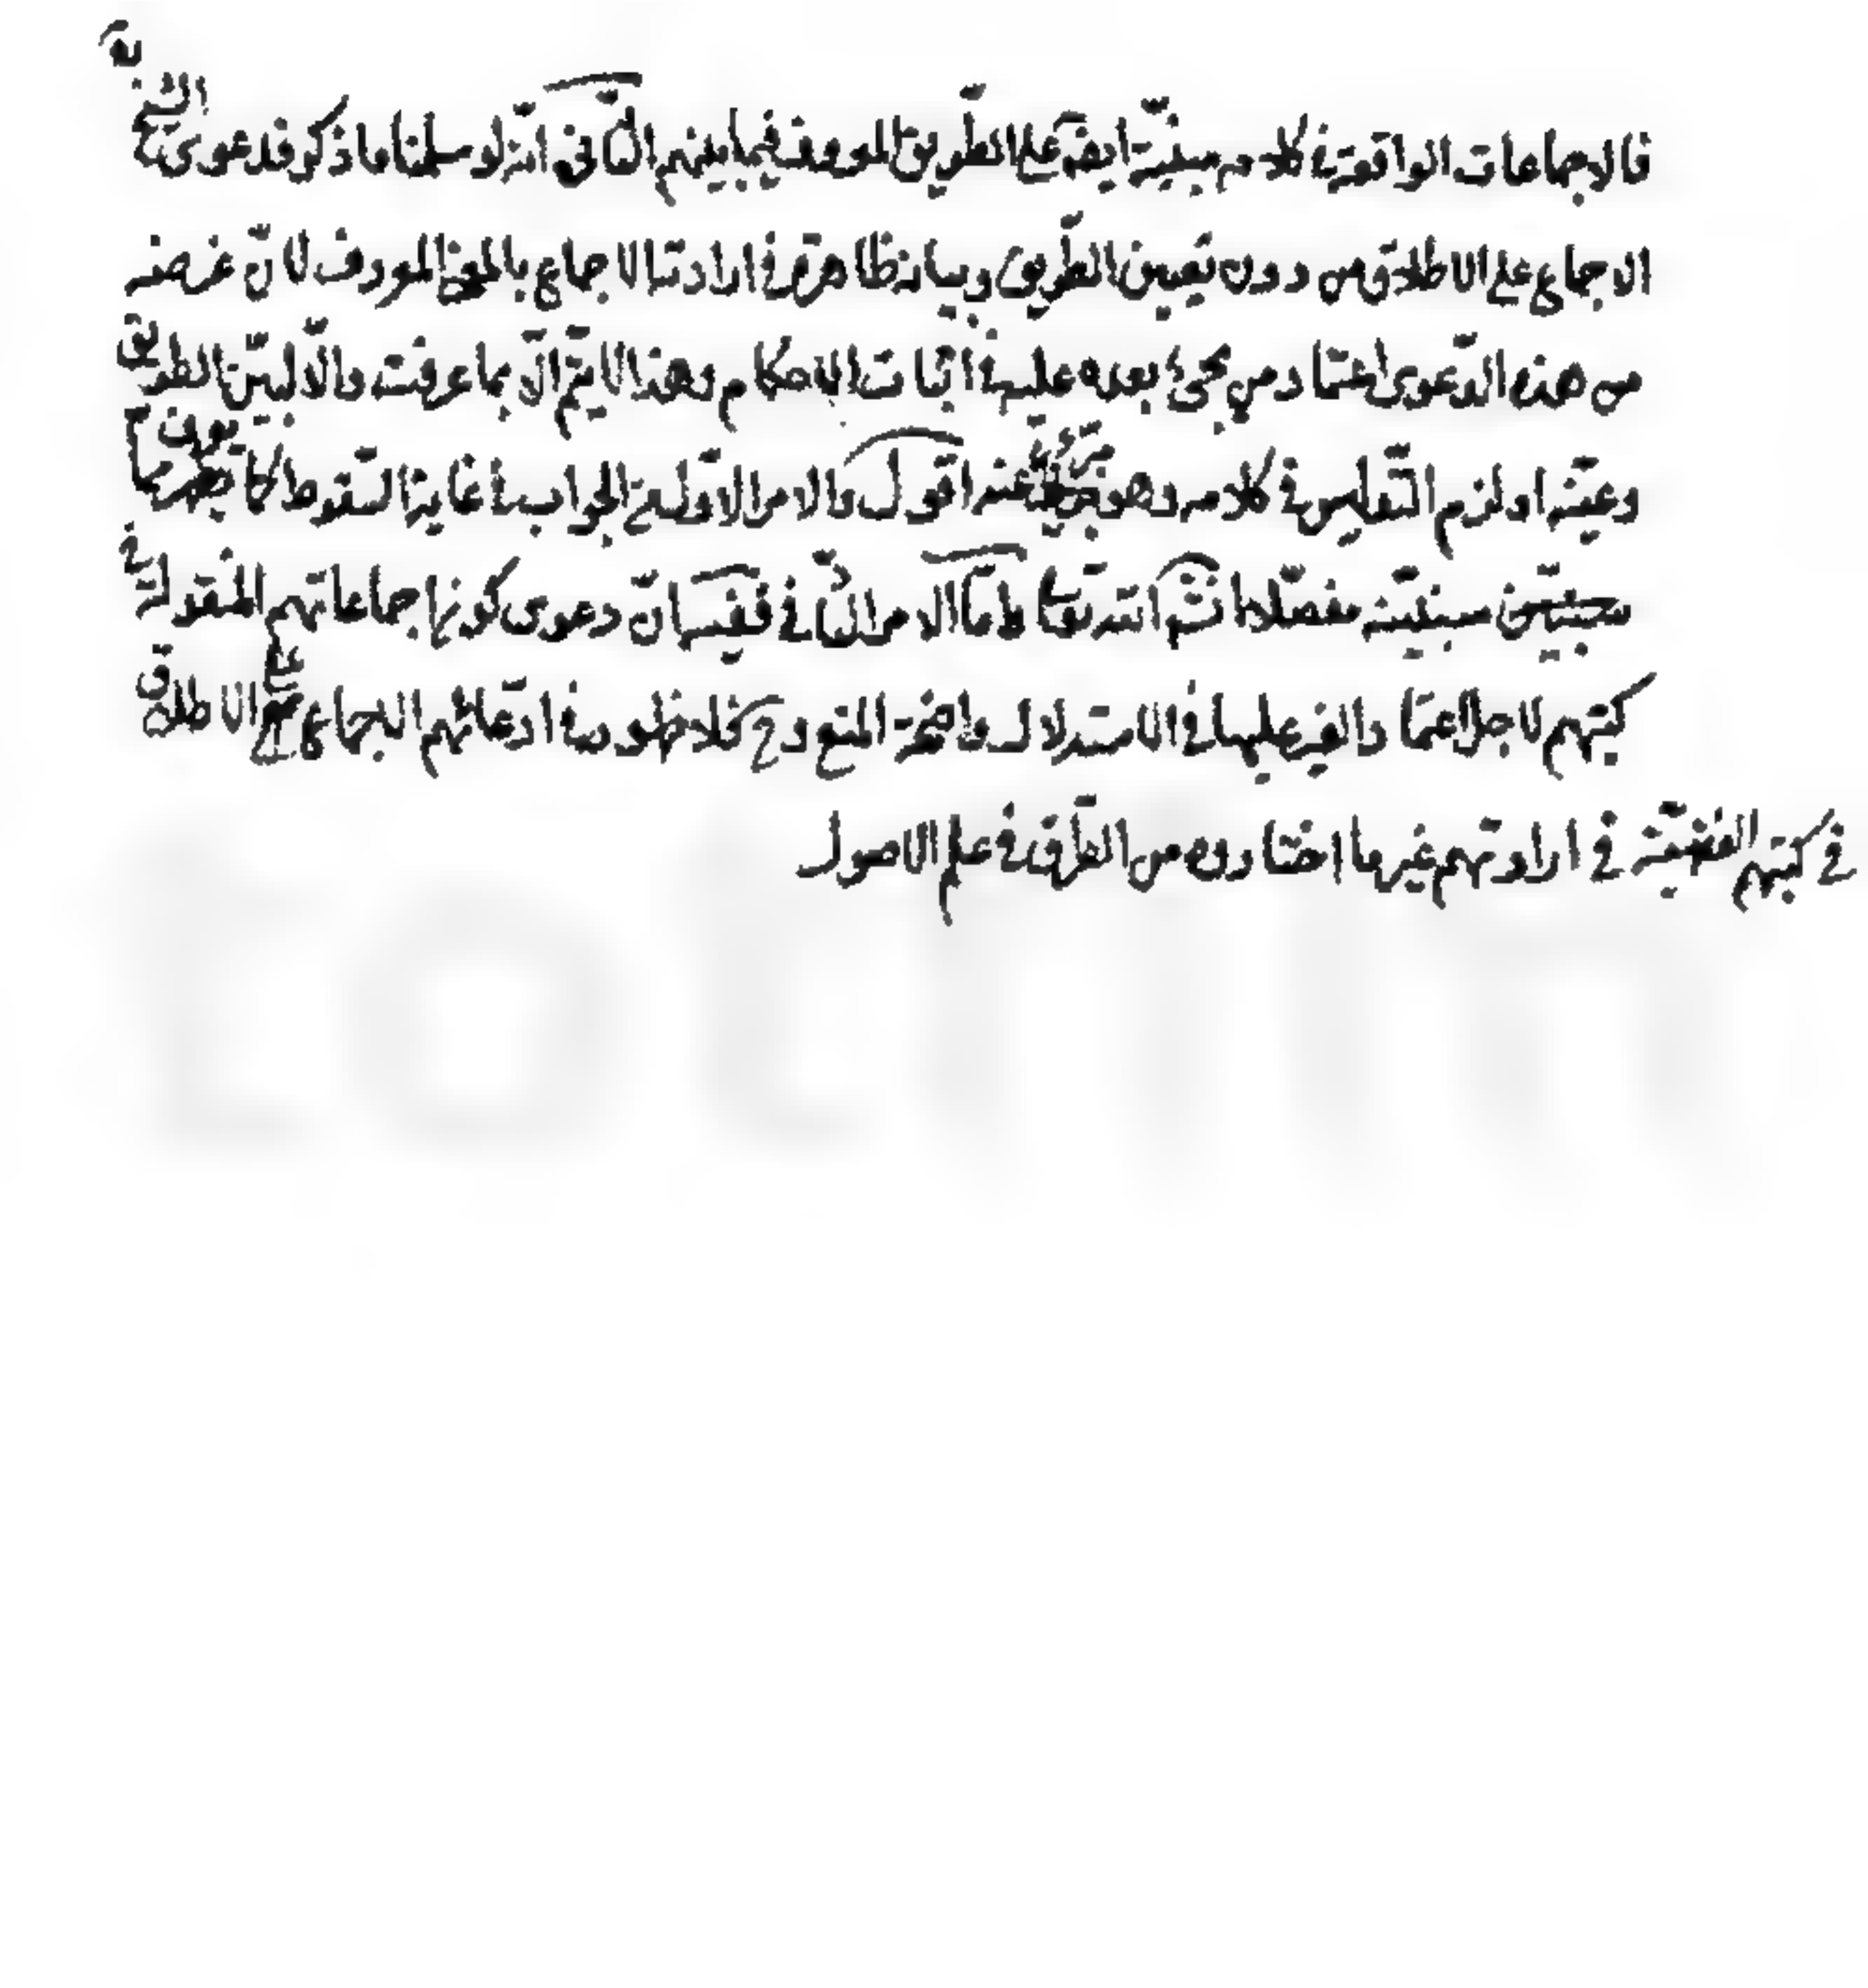 فالاجماعات الواقعة في كلامهم مبنيّة ايضا على الطّريق المعروف فيما بينهم الثّانى انّه لو سلمنا ما ذكر فدعوى الشيخ ره
الاجماع على الاطلاق من دون تعيين الطّريق وبيانه ظاهرة في ارادته الاجماع بالمعنى المعروف لانّ غرضه
من هذه الدّعوى اعتماد من يجئ بعده عليه في اثبات الاحكام وهذا لا يتمّ الّا بما عرفت والّا لبيّن الطريق
وعيّنه او لزم التّدليس في كلامه وهو عنه اقول والامر الاوّل من الجواب في غاية السّقوط كما
مبنيّة مفصّلا انشا الله تعالى وامّا الامر الثّاني ففيه انّ دعوى كون اجماعاتهم المنقولة في
كتبهم لاجل اعتماد الغير عليها في الاستدلال واضحة المنع وح فلا ظهور في ادّعائهم الاجماع على الاطلاق
في كتبهم الفقهيّة في ارادتهم غير ما اختاروه من الطّرق في علم الاصول